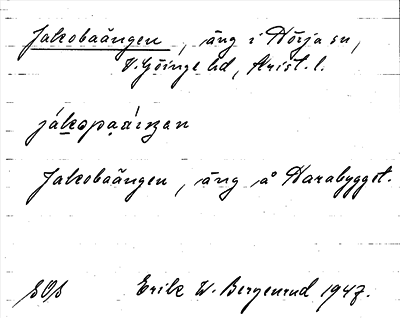 Jakobaängen, äng i Hörja sn,
V. Göinge hd, Krist. l.
Jakobaängen, äng å Harabygget.
SOS Erik W. Bergenrud 1947.